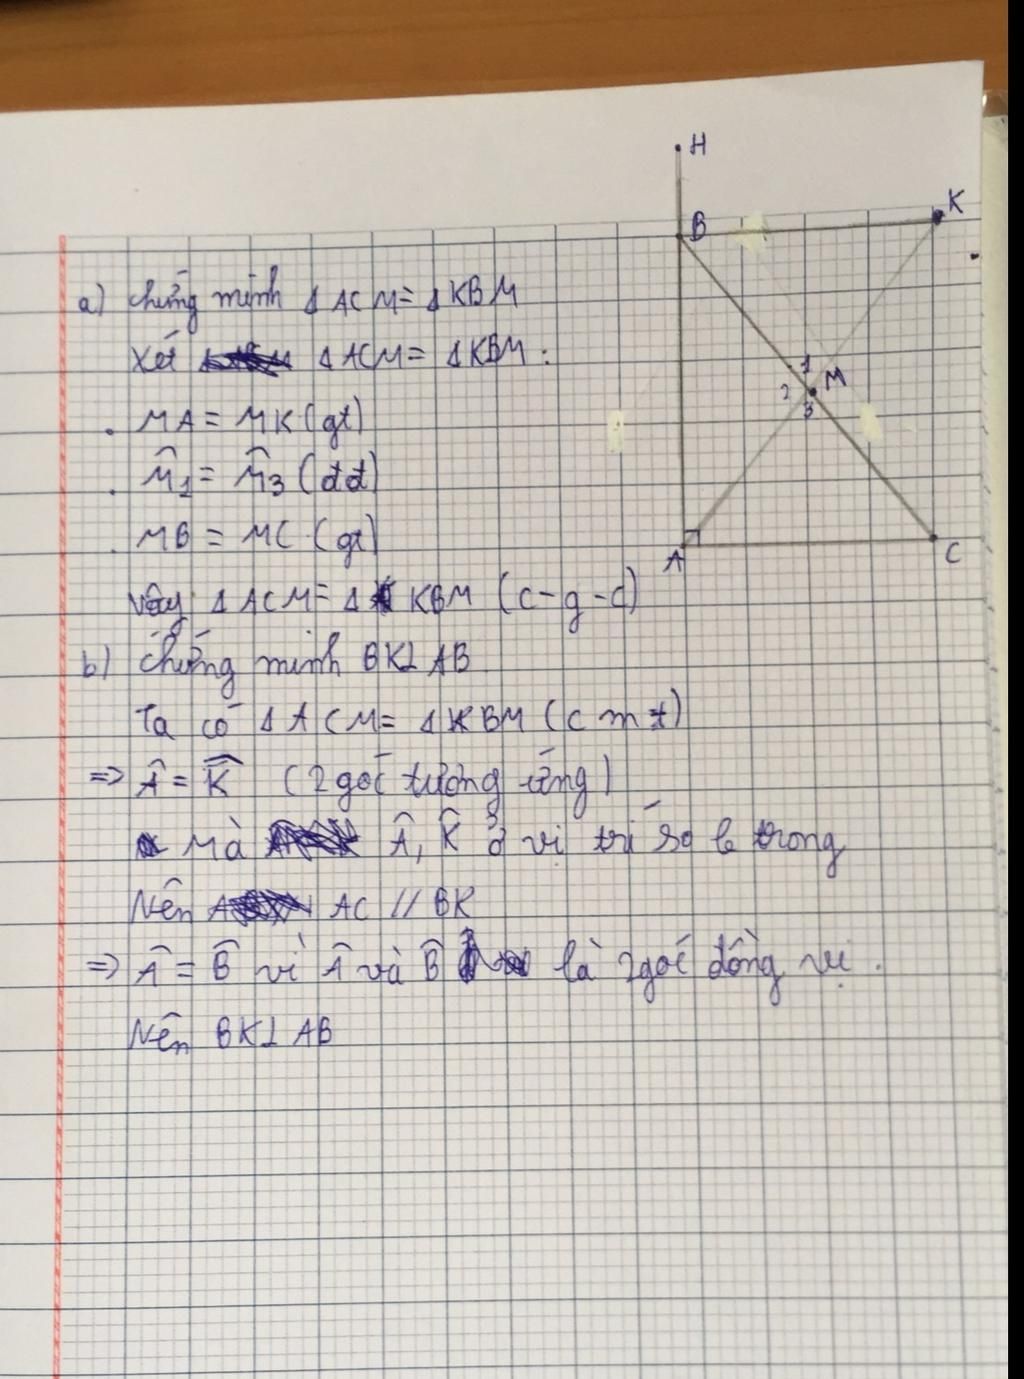 H
K
B
a) Chứng minh Δ ACM = Δ KBM
Xét Δ ACM = Δ KBM :
1
M
2
3
. MA = MK (gt)
. M̂1 = M̂3 (đđ)
. MB = MC (gt)
A
C
Vậy Δ ACM = Δ KBM (c-g-c)
b) Chứng minh BK⊥AB
Ta có Δ ACM = Δ KBM (c m t)
=> Â = K̂ (2 góc tương ứng)
Mà Â, K̂ ở vị trí so le trong
Nên AC // BK
=> Â = B̂ vì Â và B̂ là 2 góc đồng vị.
Nên BK⊥AB